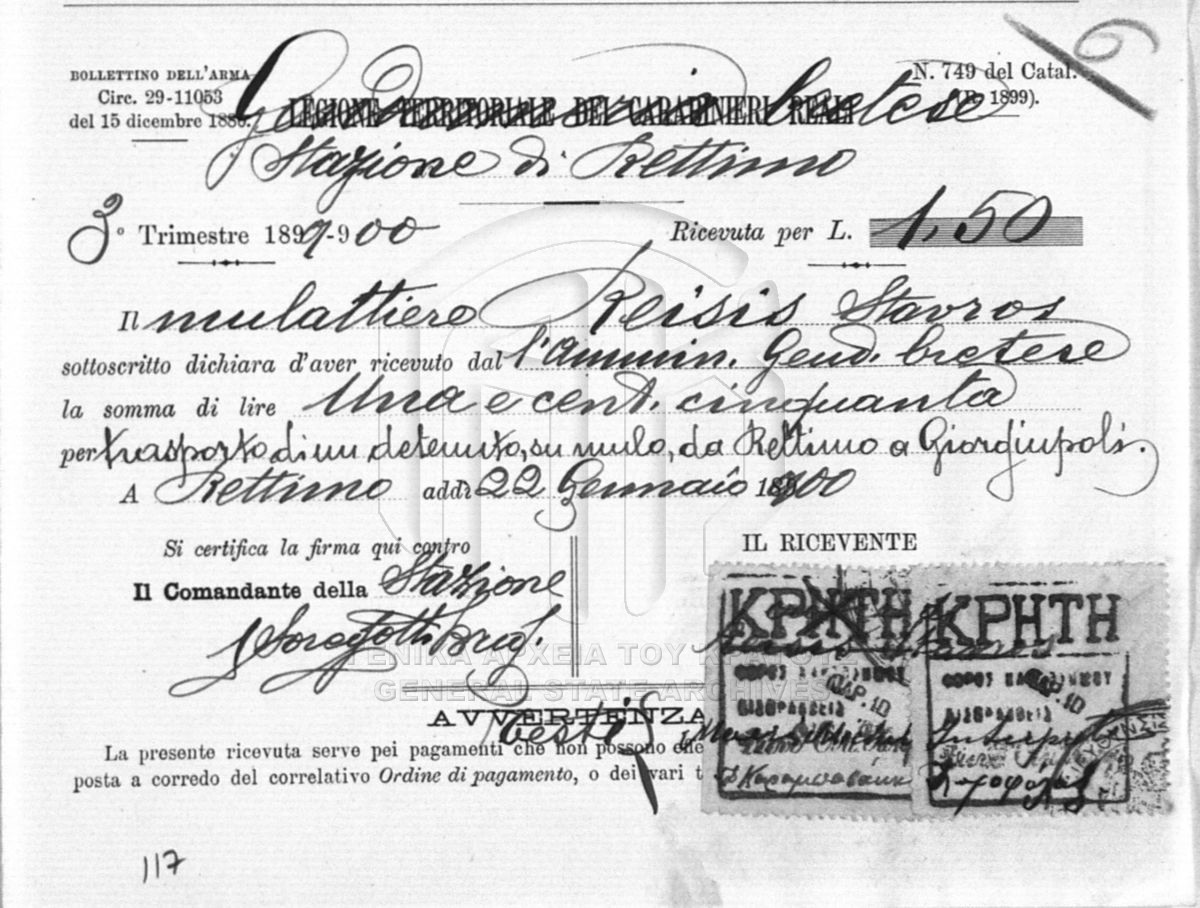 BOLLETTINO DELL'ARMA
Circ. 29-11053
del 15 dicembre 188
N. 749 del Catal.
(R. 1899).
19
LEGIONE TERRITORIALE DEI CARABINIERI REALI
Gendarmeria Cretese
Stazione di Rettimo
3° Trimestre 1899-900
Ricevuta per L. 1,50
Il mulattiere Reisis Stavros
sottoscritto dichiara d'aver ricevuto dal l'Ammin. Gend. Cretese
la somma di lire Una e cent. cinquanta
per trasporto di un detenuto, su mulo, da Rettimo a Giorgiupoli.
A Rettimo addì 22 Gennaio 1900
Si certifica la firma qui contro
IL RICEVENTE
Il Comandante della Stazione
ΚΡΗΤΗ
ΚΡΗΤΗ
ΓΕΝΙΚΑ ΑΡΧΕΙΑ ΤΟΥ ΚΡΑΤΟΥΣ
GENERAL STATE ARCHIVES
AVVERTENZA
Testi
La presente ricevuta serve pei pagamenti che non possono
posta a corredo del correlativo Ordine di pagamento, o dei vari
117